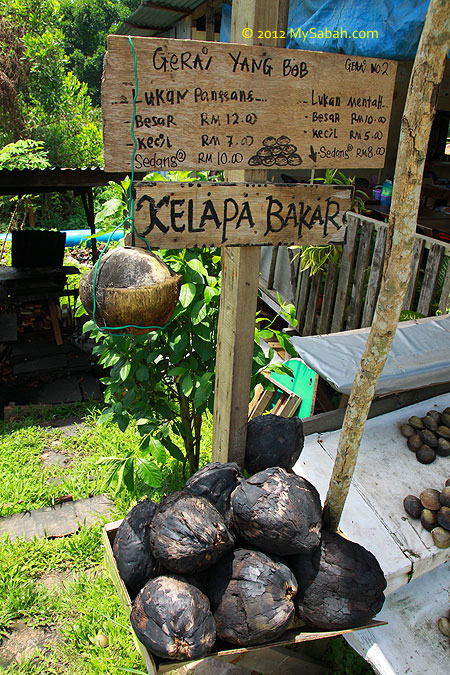 © 2012 MySabah.com
GERAI YANG BOB
GERAI NO.2
LUKAN PANGGANG...
BESAR RM 12.00
KECIL RM 7.00
SEDANG@ RM 10.00
LUKAN MENTAH...
BESAR RM 10.00
KECIL RM 5.00
SEDANG RM 8.00
KELAPA BAKAR